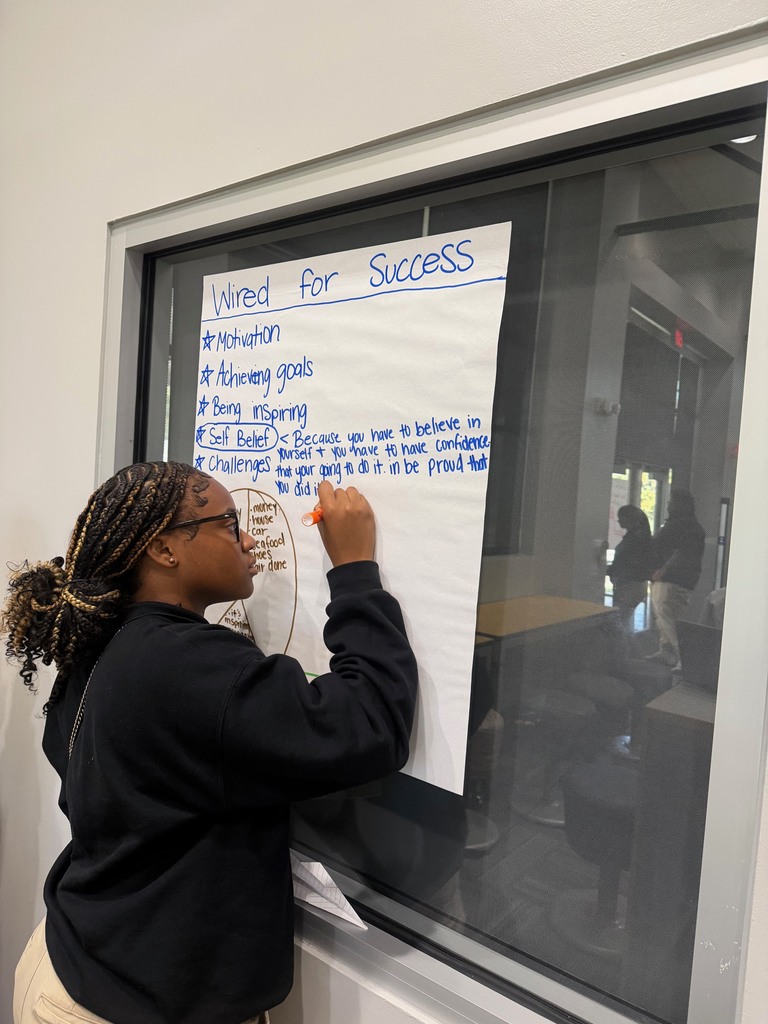 Wired for Success
☆ Motivation
☆ Achieving goals
☆ Being inspiring
☆ Self Belief < Because you have to believe in
yourself + you have to have confidence
☆ Challenges that your going to do it. in be proud that
you did
money
house
car
seafood
shoes
hair done
it's